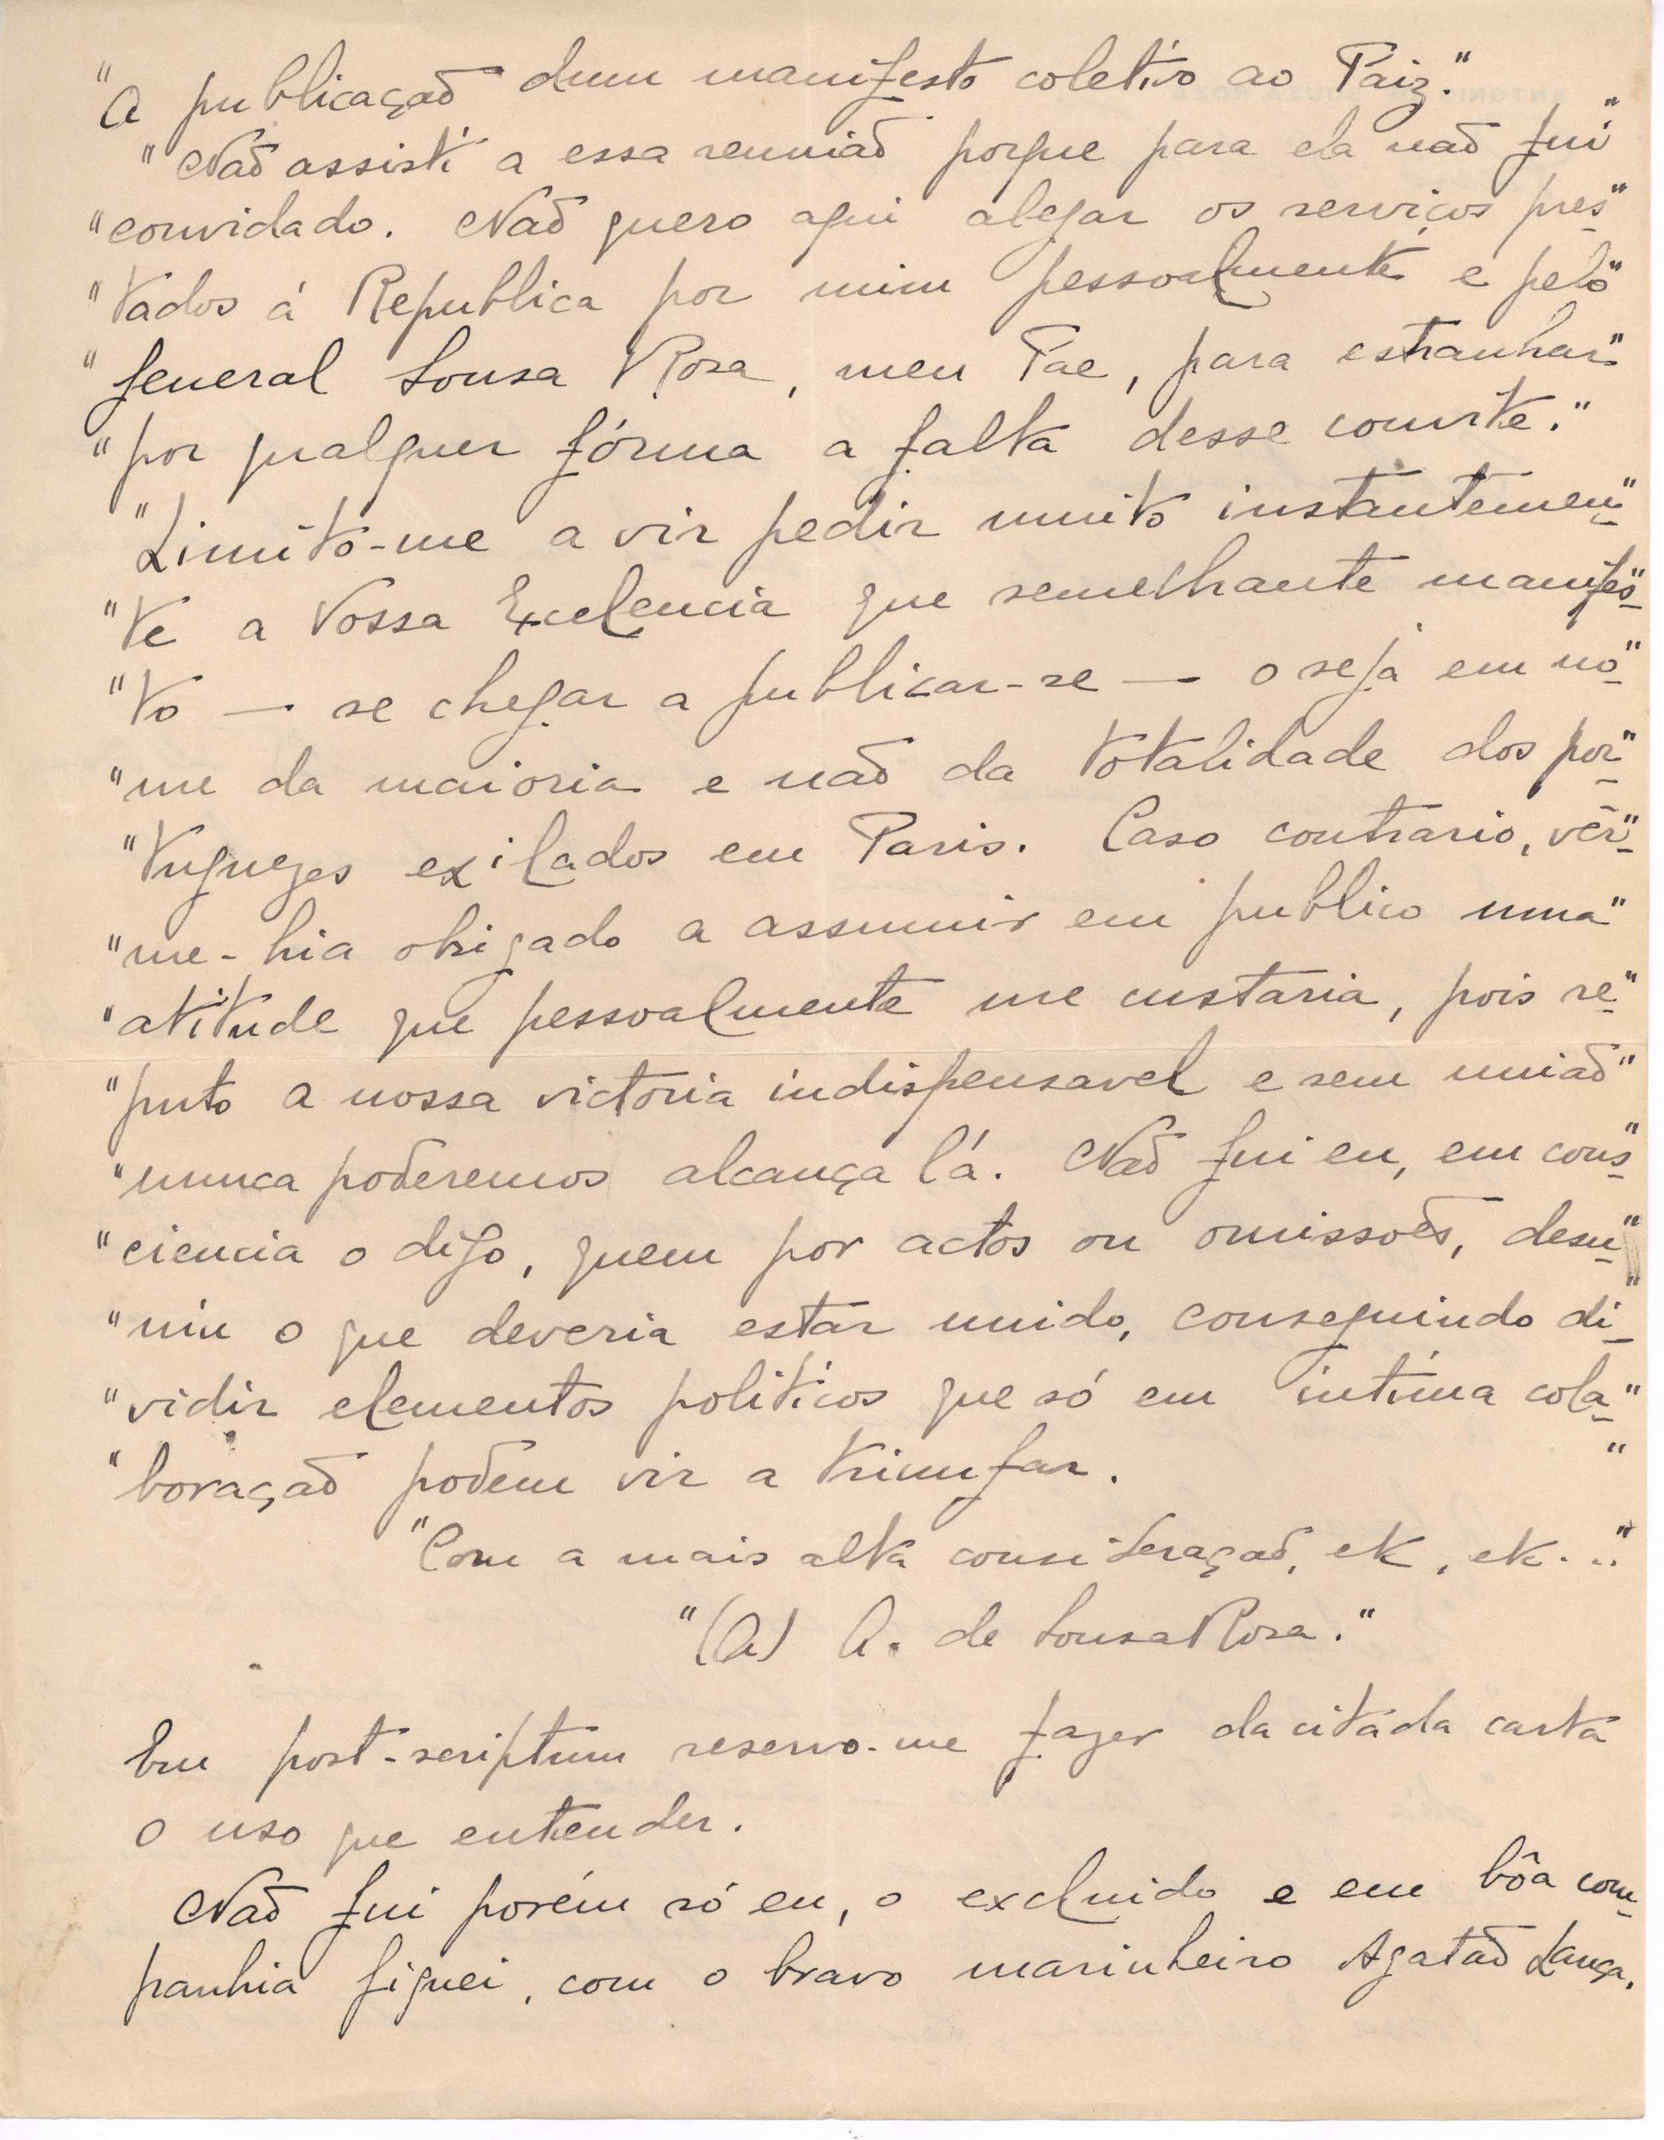 "A publicação dum manifesto coletivo ao Paiz."
"Não assisti a essa reunião porque para ela não fui"
"convidado. Não quero aqui alegar os serviços pres-"
"tados á Republica por mim pessoalmente e pelo"
"General Sousa Rosa, meu Pae, para estranhar"
"por qualquer fórma a falta desse convite."
"Limito-me a vir pedir muito instantemen-"
"te a Vossa Excelencia que semelhante manifes-"
"to — se chegar a publicar-se — o seja em no-"
"me da maioria e não da totalidade dos por-"
"tuguezes exilados em Paris. Caso contrario, vêr-"
"me-hia obrigado a assumir em publico uma"
"atitude que pessoalmente me custaria, pois re-"
"puto a nossa victoria indispensavel e sem união"
"nunca poderemos alcança lá. Não fui eu, em cons-"
"ciencia o digo, quem por actos ou omissoẽs, desu-"
"niu o que deveria estar unido, conseguindo di-"
"vidir elementos politicos que só em intima cola-"
"boração podem vir a triunfar. "
"Com a mais alta consideração, etc, etc..."
"(a) A. de Sousa Rosa."
Em post-scriptum reservo-me fazer da citada carta
o uso que entender.
Não fui porém só eu, o excluido e em bôa com-
panhia fiquei, com o bravo marinheiro Agatão Lança,